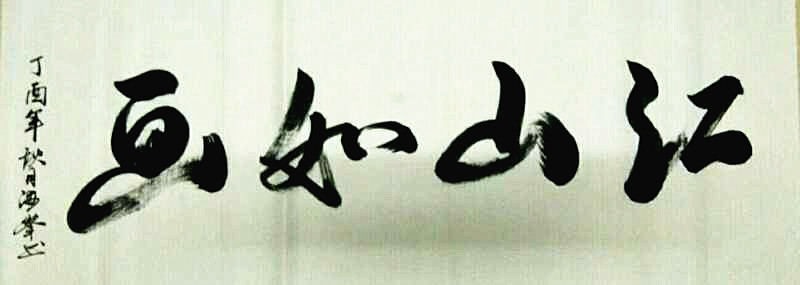 江山如画
丁酉年秋月海峰书